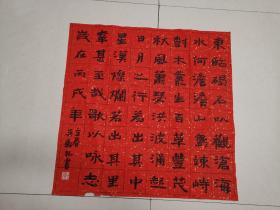 東臨碣石以觀滄海
水何澹澹山島竦峙
樹木叢生百草豐茂
秋風蕭瑟洪波涌起
日月之行若出其中
星漢燦爛若出其里
幸甚至哉歌以咏志
歲在丙戌年